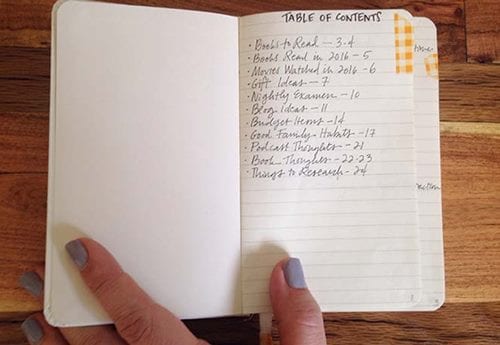 TABLE OF CONTENTS
· Books to Read — 3-4
· Books Read in 2016 - 5
· Movies Watched in 2016 - 6
· Gift Ideas - 7
· Nightly Examen - 10
· Blog Ideas - 11
· Budget Items - 14
· Good Family Habits - 17
· Podcast Thoughts - 21
· Book Thoughts - 22-23
· Things to Research - 24